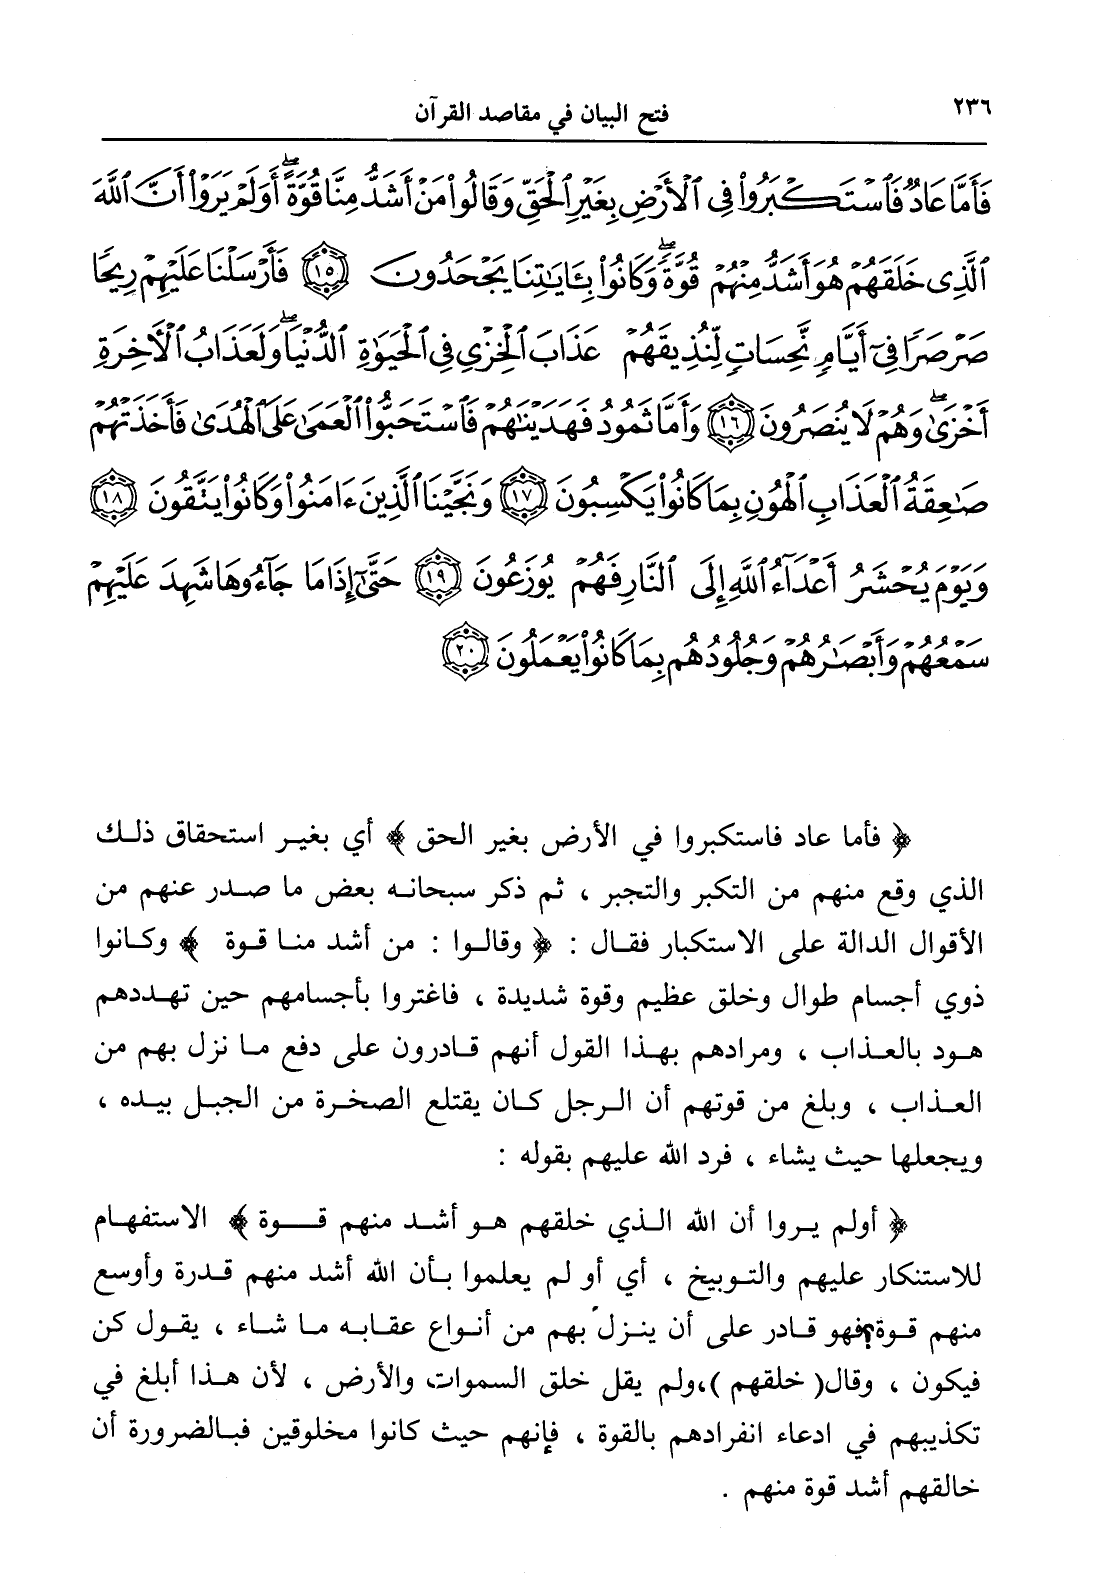 ٢٣٦
فتح البيان في مقاصد القرآن
فَأَمَّا عَادٌ فَٱسْتَكْبَرُوا۟ فِى ٱلْأَرْضِ بِغَيْرِ ٱلْحَقِّ وَقَالُوا۟ مَنْ أَشَدُّ مِنَّا قُوَّةً ۖ أَوَلَمْ يَرَوْا۟ أَنَّ ٱللَّهَ
ٱلَّذِى خَلَقَهُمْ هُوَ أَشَدُّ مِنْهُمْ قُوَّةً ۖ وَكَانُوا۟ بِـَٔايَـٰتِنَا يَجْحَدُونَ ١٥ فَأَرْسَلْنَا عَلَيْهِمْ رِيحًا
صَرْصَرًا فِىٓ أَيَّامٍ نَّحِسَاتٍ لِّنُذِيقَهُمْ عَذَابَ ٱلْخِزْىِ فِى ٱلْحَيَوٰةِ ٱلدُّنْيَا ۖ وَلَعَذَابُ ٱلْأَخِرَةِ
أَخْزَىٰ ۖ وَهُمْ لَا يُنصَرُونَ ١٦ وَأَمَّا ثَمُودُ فَهَدَيْنَـٰهُمْ فَٱسْتَحَبُّوا۟ ٱلْعَمَىٰ عَلَى ٱلْهُدَىٰ فَأَخَذَتْهُمْ
صَـٰعِقَةُ ٱلْعَذَابِ ٱلْهُونِ بِمَا كَانُوا۟ يَكْسِبُونَ ١٧ وَنَجَّيْنَا ٱلَّذِينَ ءَامَنُوا۟ وَكَانُوا۟ يَتَّقُونَ ١٨
وَيَوْمَ يُحْشَرُ أَعْدَآءُ ٱللَّهِ إِلَى ٱلنَّارِ فَهُمْ يُوزَعُونَ ١٩ حَتَّىٰٓ إِذَا مَا جَآءُوهَا شَهِدَ عَلَيْهِمْ
سَمْعُهُمْ وَأَبْصَـٰرُهُمْ وَجُلُودُهُم بِمَا كَانُوا۟ يَعْمَلُونَ ٢٠
﴿ فأما عاد فاستكبروا في الأرض بغير الحق ﴾ أي بغير استحقاق ذلك
الذي وقع منهم من التكبر والتجبر ، ثم ذكر سبحانه بعض ما صدر عنهم من
الأقوال الدالة على الاستكبار فقال : ﴿ وقالوا : من أشد منا قوة ﴾ وكانوا
ذوي أجسام طوال وخلق عظيم وقوة شديدة ، فاغتروا بأجسامهم حين تهددهم
هود بالعذاب ، ومرادهم بهذا القول أنهم قادرون على دفع ما نزل بهم من
العذاب ، وبلغ من قوتهم أن الرجل كان يقتلع الصخرة من الجبل بيده ،
ويجعلها حيث يشاء ، فرد الله عليهم بقوله :
﴿ أولم يروا أن الله الذي خلقهم هو أشد منهم قوة ﴾ الاستفهام
للاستنكار عليهم والتوبيخ ، أي أو لم يعلموا بأن الله أشد منهم قدرة وأوسع
منهم قوة؟فهو قادر على أن ينزل بهم من أنواع عقابه ما شاء ، يقول كن
فيكون ، وقال( خلقهم )،ولم يقل خلق السموات والأرض ، لأن هذا أبلغ في
تكذيبهم في ادعاء انفرادهم بالقوة ، فإنهم حيث كانوا مخلوقين فبالضرورة أن
خالقهم أشد قوة منهم .